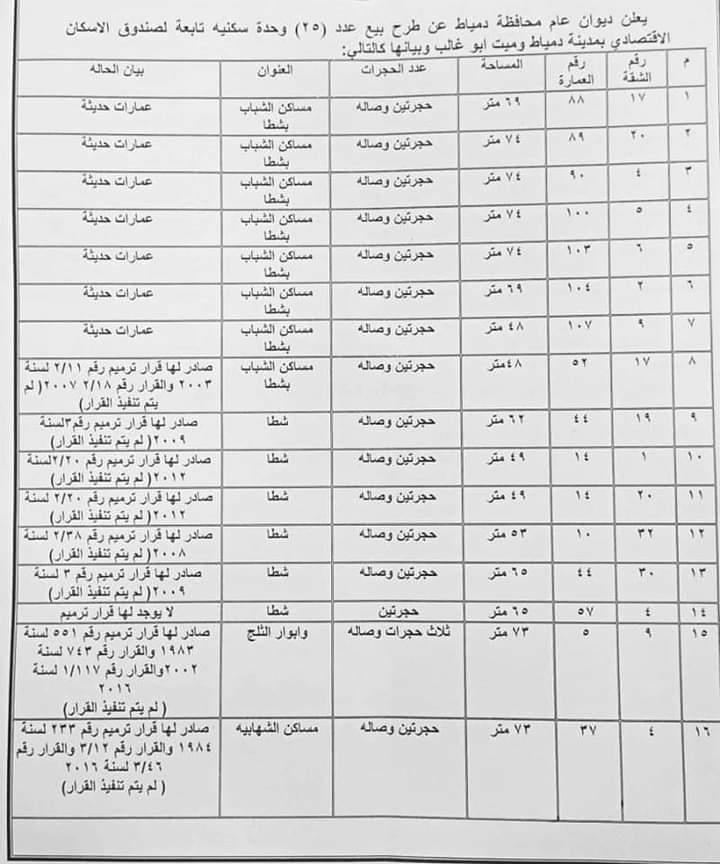 يعلن ديوان عام محافظة دمياط عن طرح بيع عدد (٢٥) وحدة سكنيه تابعة لصندوق الاسكان
الاقتصادي بمدينة دمياط وميت ابو غالب وبيانها كالتالي:
م رقم الشقة رقم العمارة المساحة عدد الحجرات العنوان بيان الحاله
١ ١٧ ٨٨ ٦٩ متر حجرتين وصاله مساكن الشباب بشطا عمارات حديثة
٢ ٢٠ ٨٩ ٧٤ متر حجرتين وصاله مساكن الشباب بشطا عمارات حديثة
٣ ٤ ٩٠ ٧٤ متر حجرتين وصاله مساكن الشباب بشطا عمارات حديثة
٤ ٥ ١٠٠ ٧٤ متر حجرتين وصاله مساكن الشباب بشطا عمارات حديثة
٥ ٦ ١٠٣ ٧٤ متر حجرتين وصاله مساكن الشباب بشطا عمارات حديثة
٦ ٢ ١٠٤ ٦٩ متر حجرتين وصاله مساكن الشباب بشطا عمارات حديثة
٧ ٩ ١٠٧ ٤٨ متر حجرتين وصاله مساكن الشباب بشطا عمارات حديثة
٨ ١٧ ٥٢ ٤٨متر حجرتين وصاله مساكن الشباب بشطا صادر لها قرار ترميم رقم ٢/١١ لسنة
٢٠٠٣ والقرار رقم ٢/١٨ ٢٠٠٧( لم
يتم تنفيذ القرار)
٩ ١٩ ٤٤ ٦٢ متر حجرتين وصاله شطا صادر لها قرار ترميم رقم٣لسنة
٢٠٠٩( لم يتم تنفيذ القرار)
١٠ ١ ١٤ ٤٩ متر حجرتين وصاله شطا صادر لها قرار ترميم رقم ٢/٢٠لسنة
٢٠١٢( لم يتم تنفيذ القرار)
١١ ٢٠ ١٤ ٤٩ متر حجرتين وصاله شطا صادر لها قرار ترميم رقم ٢/٢٠ لسنة
٢٠١٢( لم يتم تنفيذ القرار)
١٢ ٣٢ ١٠ ٥٣ متر حجرتين وصاله شطا صادر لها قرار ترميم رقم ٢/٣٨ لسنة
٢٠٠٨( لم يتم تنفيذ القرار)
١٣ ٣٠ ٤٤ ٦٥ متر حجرتين وصاله شطا صادر لها قرار ترميم رقم ٣ لسنة
٢٠٠٩( لم يتم تنفيذ القرار)
١٤ ٤ ٥٧ ٦٥ متر حجرتين شطا لا يوجد لها قرار ترميم
١٥ ٩ ٥ ٧٣ متر ثلاث حجرات وصاله وابوار الثلج صادر لها قرار ترميم رقم ٥٥١ لسنة
١٩٨٣ والقرار رقم ٧٤٣ لسنة
٢٠٠٢والقرار رقم ١/١١٧ لسنة
٢٠١٦
( لم يتم تنفيذ القرار)
١٦ ٤ ٣٧ ٧٣ متر حجرتين وصاله مساكن الشهابيه صادر لها قرار ترميم رقم ٢٣٣ لسنة
١٩٨٤ والقرار رقم ٣/١٢ والقرار رقم
٣/٤٦ لسنة ٢٠١٦
( لم يتم تنفيذ القرار)